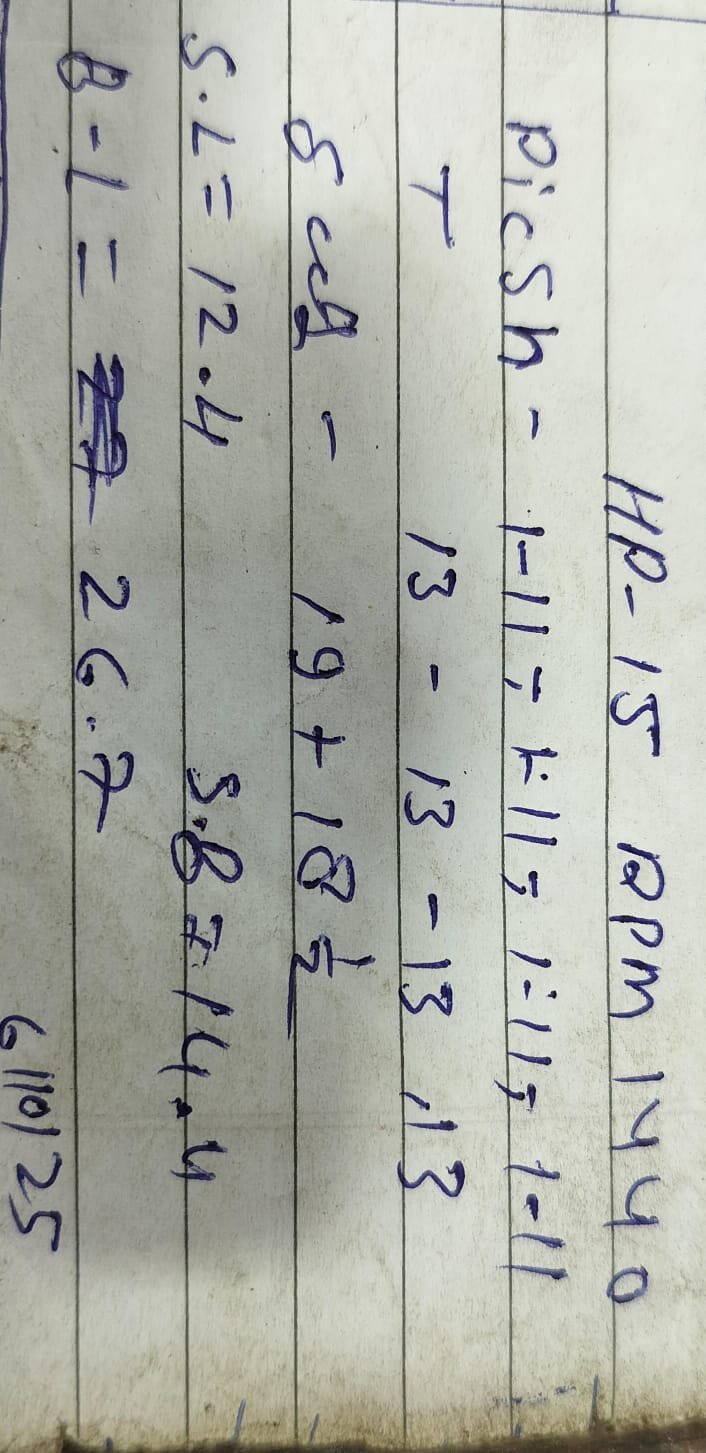 HP-15 RPM 1440
Picsh - 1-11; 1-11; 1-11; 1-11
T 13 - 13 - 13 , 13
Swg - 19 + 18 1/2
S.L = 12.4 S.B = 14.4
B-L = 26.7
6/10/25